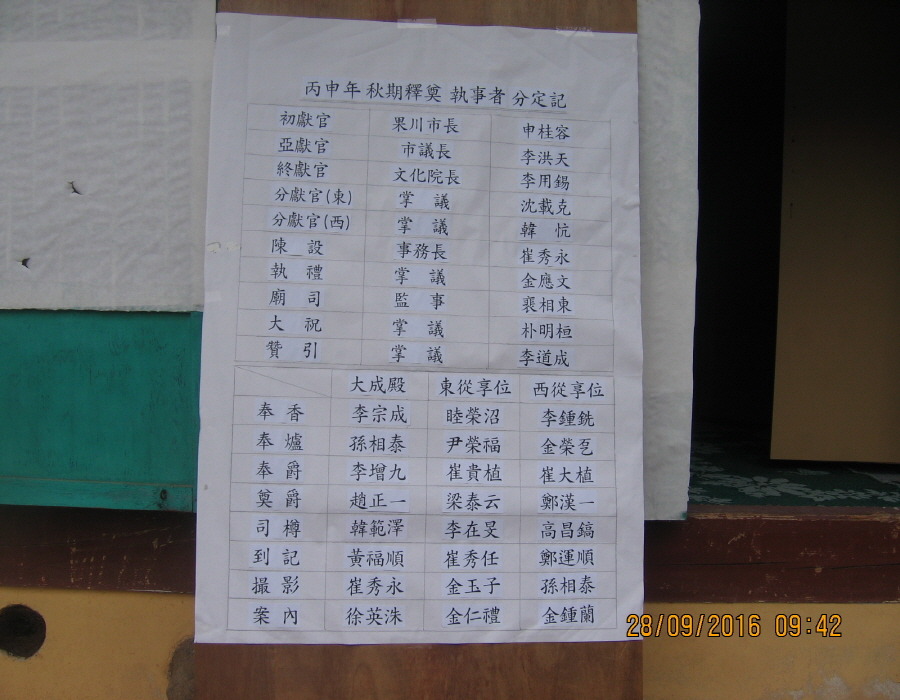 丙申年 秋期釋奠 執事者 分定記
初獻官 果川市長 申桂容
亞獻官 市議長 李洪天
終獻官 文化院長 李用錫
分獻官(東) 掌 議 沈載克
分獻官(西) 掌 議 韓 忼
陳 設 事務長 崔秀永
執 禮 掌 議 金應文
廟 司 監 事 裵相東
大 祝 掌 議 朴明桓
贊 引 掌 議 李道成
大成殿 東從享位 西從享位
奉 香 李宗成 睦榮沼 李鍾銑
奉 爐 孫相泰 尹榮福 金榮
奉 爵 李增九 崔貴植 崔大植
奠 爵 趙正一 梁泰云 鄭漢一
司 樽 韓範澤 李在旻 高昌鎬
到 記 黃福順 崔秀任 鄭運順
撮 影 崔秀永 金玉子 孫相泰
案 內 徐英洙 金仁禮 金鍾蘭
28/09/2016 09:42